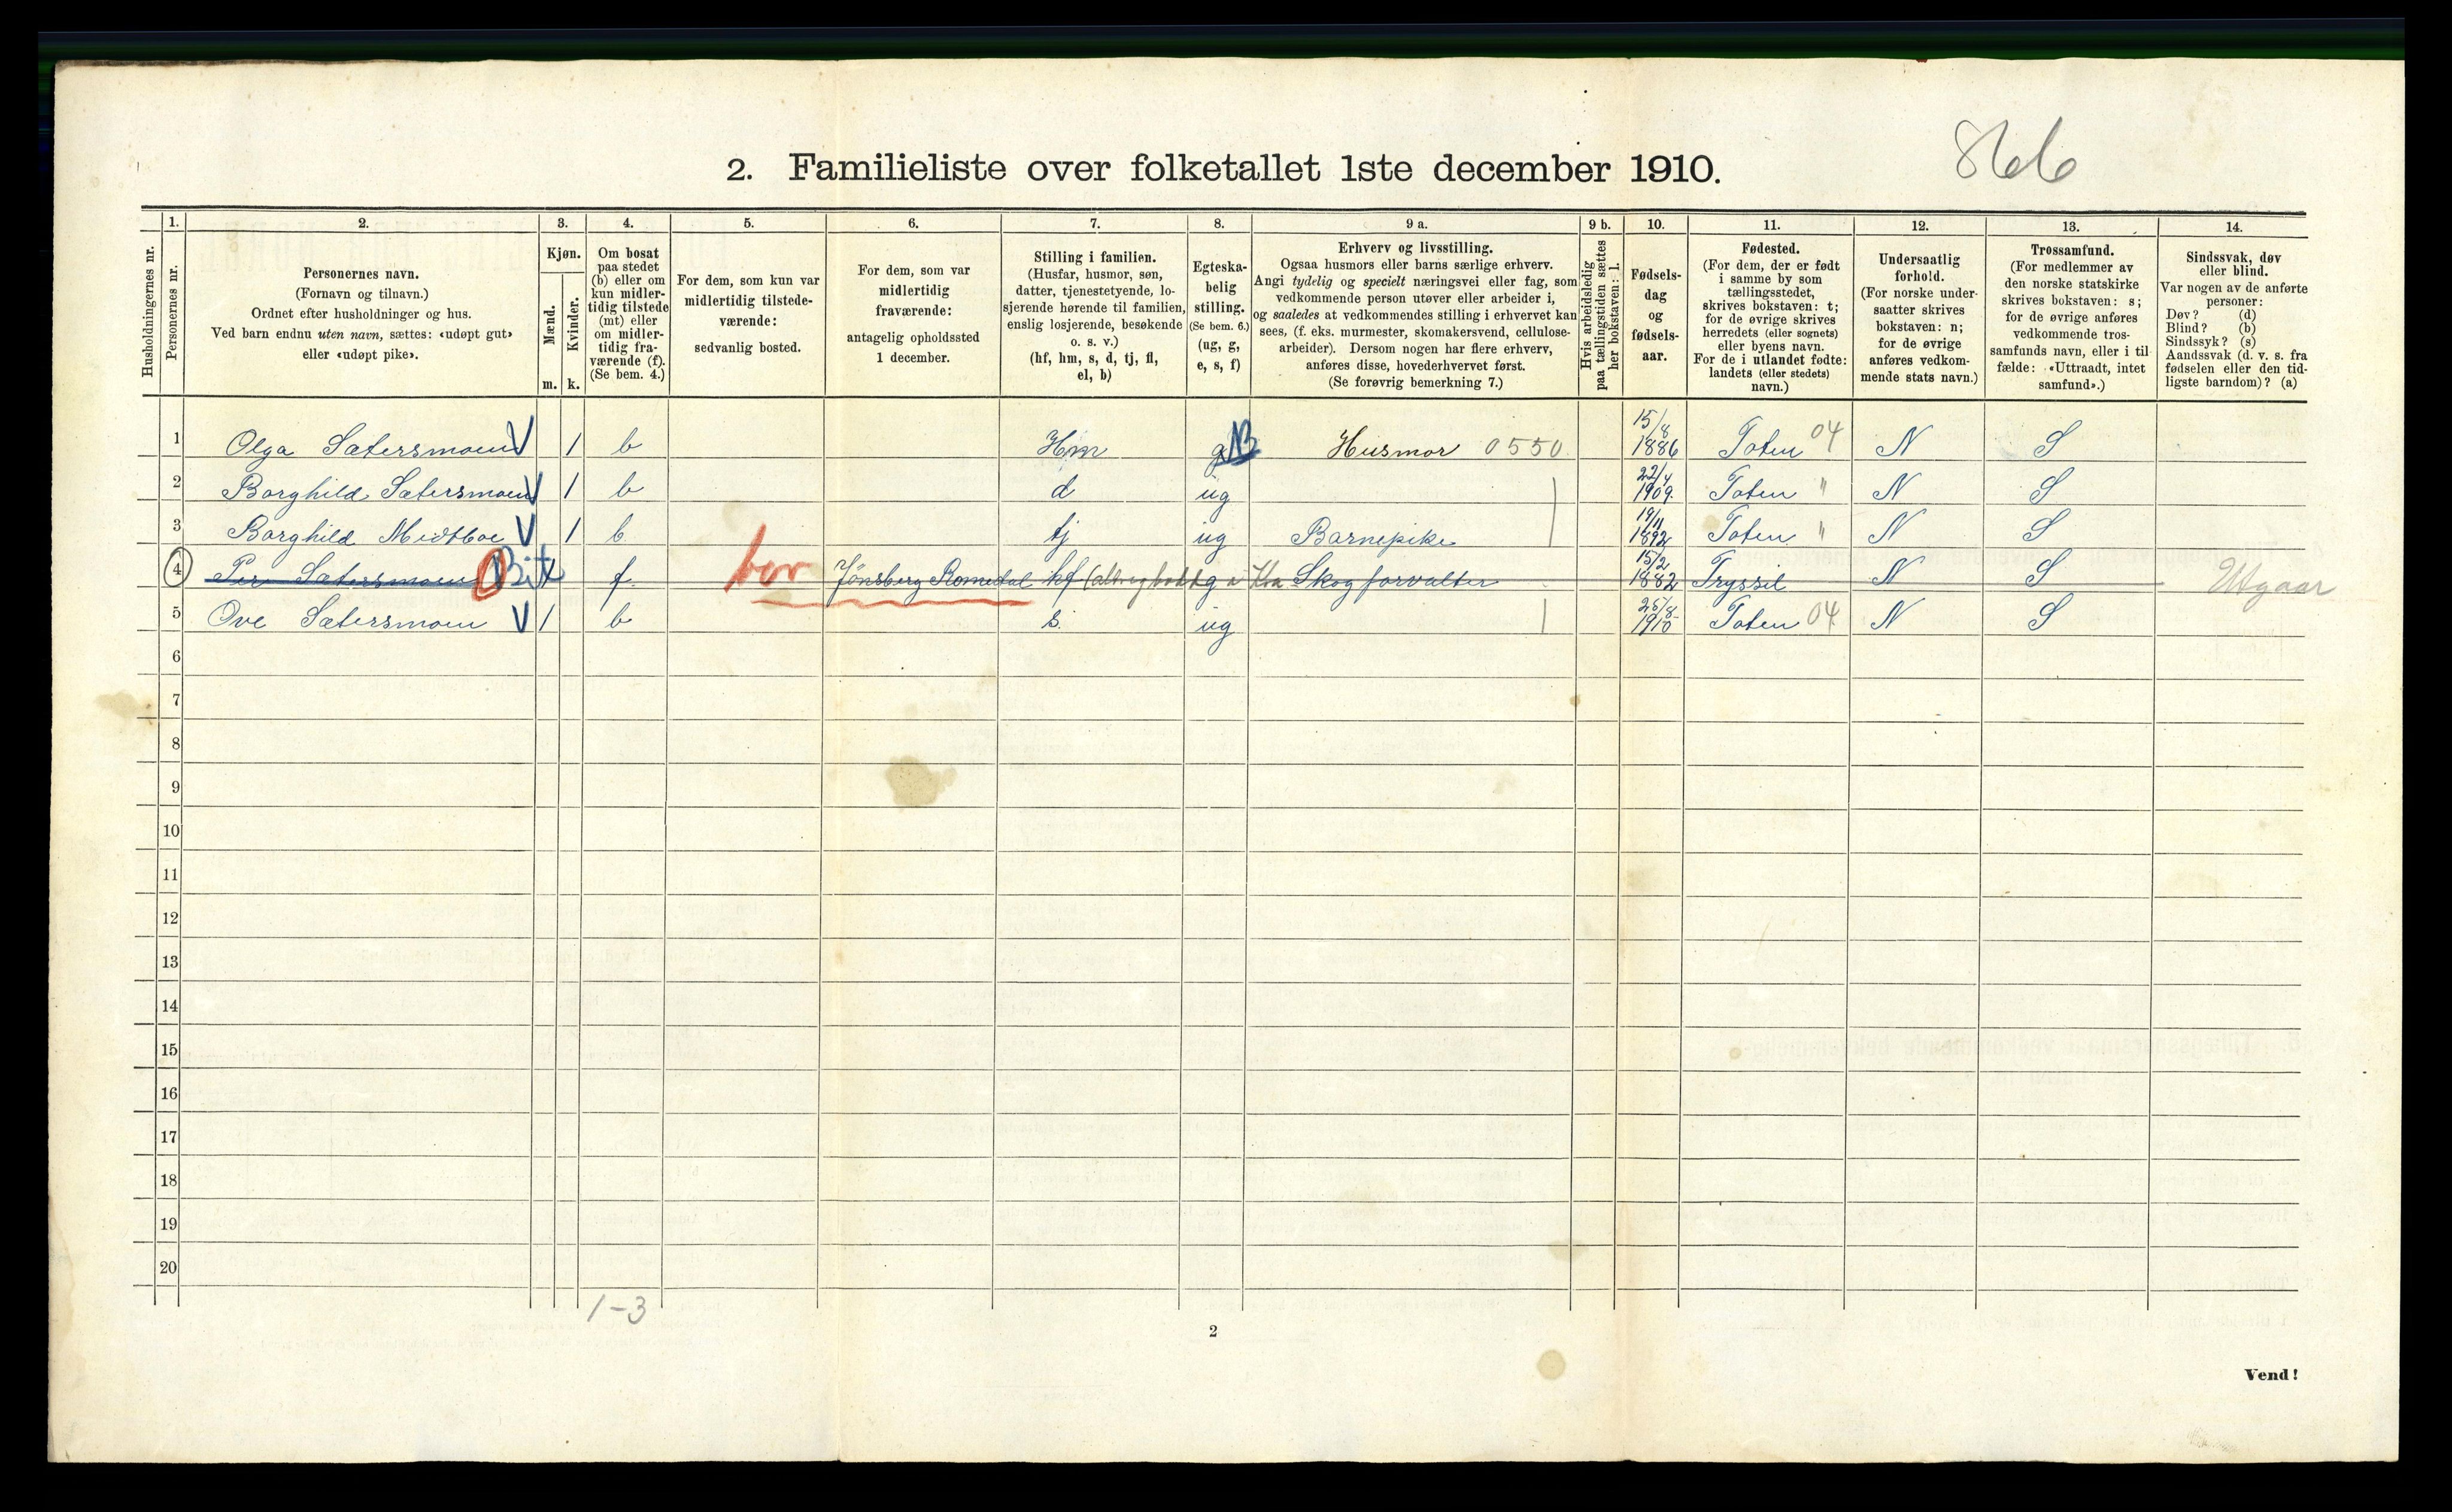 866
2. Familieliste over folketallet 1ste december 1910.
Husholdningernes nr.
1.
Personernes nr.
2.
Personernes navn.
(Fornavn og tilnavn.)
Ordnet efter husholdninger og hus.
Ved barn endnu uten navn, sættes: «udøpt gut»
eller «udøpt pike».
3.
Kjøn.
Mænd.
Kvinder.
m. k.
4.
Om bosat
paa stedet
(b) eller om
kun midler-
tidig tilstede
(mt) eller
om midler-
tidig fra-
værende (f).
(Se bem. 4.)
5.
For dem, som kun var
midlertidig tilstede-
værende:
sedvanlig bosted.
6.
For dem, som var
midlertidig
fraværende:
antagelig opholdssted
1 december.
7.
Stilling i familien.
(Husfar, husmor, søn,
datter, tjenestetyende, lo-
sjerende hørende til familien,
enslig losjerende, besøkende
o. s. v.)
(hf, hm, s, d, tj, fl,
el, b)
8.
Egteska-
belig
stilling.
(Se bem. 6.)
(ug, g,
e, s, f)
9 a.
Erhverv og livsstilling.
Ogsaa husmors eller barns særlige erhverv.
Angi tydelig og specielt næringsvei eller fag, som
vedkommende person utøver eller arbeider i,
og saaledes at vedkommendes stilling i erhvervet kan
sees, (f. eks. murmester, skomakersvend, cellulose-
arbeider). Dersom nogen har flere erhverv,
anføres disse, hovederhvervet først.
(Se forøvrig bemerkning 7.)
9 b.
Hvis arbeidsledig
paa tællingstiden sættes
her bokstaven: l.
10.
Fødsels-
dag
og
fødsels-
aar.
11.
Fødested.
(For dem, der er født
i samme by som
tællingsstedet,
skrives bokstaven: t;
for de øvrige skrives
herredets (eller sognets)
eller byens navn.
For de i utlandet fødte:
landets (eller stedets)
navn.)
12.
Undersaatlig
forhold.
(For norske under-
saatter skrives
bokstaven: n;
for de øvrige
anføres vedkom-
mende stats navn.)
13.
Trossamfund.
(For medlemmer av
den norske statskirke
skrives bokstaven: s;
for de øvrige anføres
vedkommende tros-
samfunds navn, eller i til-
fælde: «Uttraadt, intet
samfund».)
14.
Sindssvak, døv
eller blind.
Var nogen av de anførte
personer:
Døv? (d)
Blind? (b)
Sindssyk? (s)
Aandssvak (d. v. s. fra
fødselen eller den tid-
ligste barndom)? (a)
1 Olga Sætersmoen V 1 b Hm g B Husmor 0550 15/8 1886 Toten 04 N S
2 Borghild Sætersmoen V 1 b d ug 22/4 1909. Toten " N S
3 Borghild Midtboe V 1 b tj ug Barnepike 19/11 1892 Toten " N S
4 Per Sætersmoen f. bor Jönsberg Romedal hf g Skogforvalter 15/2 1882 Tryssil N S Utgaar
5 Ove Sætersmoen V 1 b s. ug 25/8 1910 Toten 04 N S
6
7
8
9
10
11
12
13
14
15
16
17
18
19
20
1-3
2
Vend!